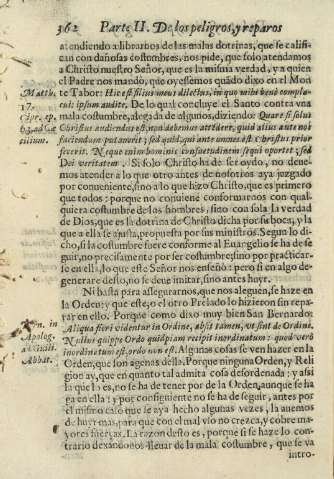 362 Parte II. De los peligros, y reparos
atendiendo a librarnos de las malas dotrinas, que se califi-
can con dañosas costumbres, nos pide, que solo atendamos
a Christo nuestro Señor, que es la misma verdad, y a quien
el Padre nos mandò, que oyessemos quãdo dixo en el Mon
te Tabor: Hic est filius meus dilectus, in quo mihi bene compla-
cui ipsum audite. De lo qual concluye el Santo contra vna
mala costumbre, alegada de algunos, diziendo: Quare si solus
Christus audiendus est, non debemus attẽdere, quid alius ante nos
faciendum putaverit; sed quid, qui ante omnes est Christus prior
fecerit. Neque enim hominis consuetudinem sequi oportet, sed
Dei veritatem. Si solo Christo ha de ser oydo, no deve-
mos atender a lo que otro antes de nosotros aya juzgado
por conveniente, sino a lo que hizo Christo, que es primero
que todos: porque no conviene conformarnos con qual-
quiera costumbre de los hombres, sino con sola la verdad
de Dios, que es la dotrina de Christo dicha por su boca, y la
que a ella se ajusta, propuesta por sus ministros. Segun lo di-
cho, si la costumbre fuere conforme al Euangelio se ha de se
guir, no precisamente por ser costumbre, sino por practicar-
se en ella, lo que este Señor nos enseñò: pero si en algo de-
generare desto, no se deve imitar, sino antes huyr.
Ni basta para assegurarnos, que nos aleguen, se haze en
la Orden; y que este, o el otro Prelado lo hizieron sin repa-
rar en ello. Porque como dixo muy bien San Bernardo:
Aliqua fieri videntur in Ordine, absit tamen, vt sint de Ordini.
Nullus quippe Ordo quidpiam recipit inordinatum: quod verò
inordinatum est, ordo non est. Algunas cosas se ven hazer en la
Orden, que son agenas della. Porque ninguna Orden, y Reli
gion ay, que en quanto tal admita cosa desordenada: y assi
la que lo es, no se ha de tener por de la Orden, aunque se ha
ga en ella: y por consiguiente no se ha de seguir, antes por
el mismo caso que se aya hecho algunas vezes, la avemos
de huyr mas, para que con el mal vso no crezca, y cobre ma-
yores fuerças. La razon desto es, porque si se haze lo con-
trario dexandonos llevar de la mala costumbre, que se va
intro-
Matth.
17.
Cipr. ep.
in Apolog.
Abbat.